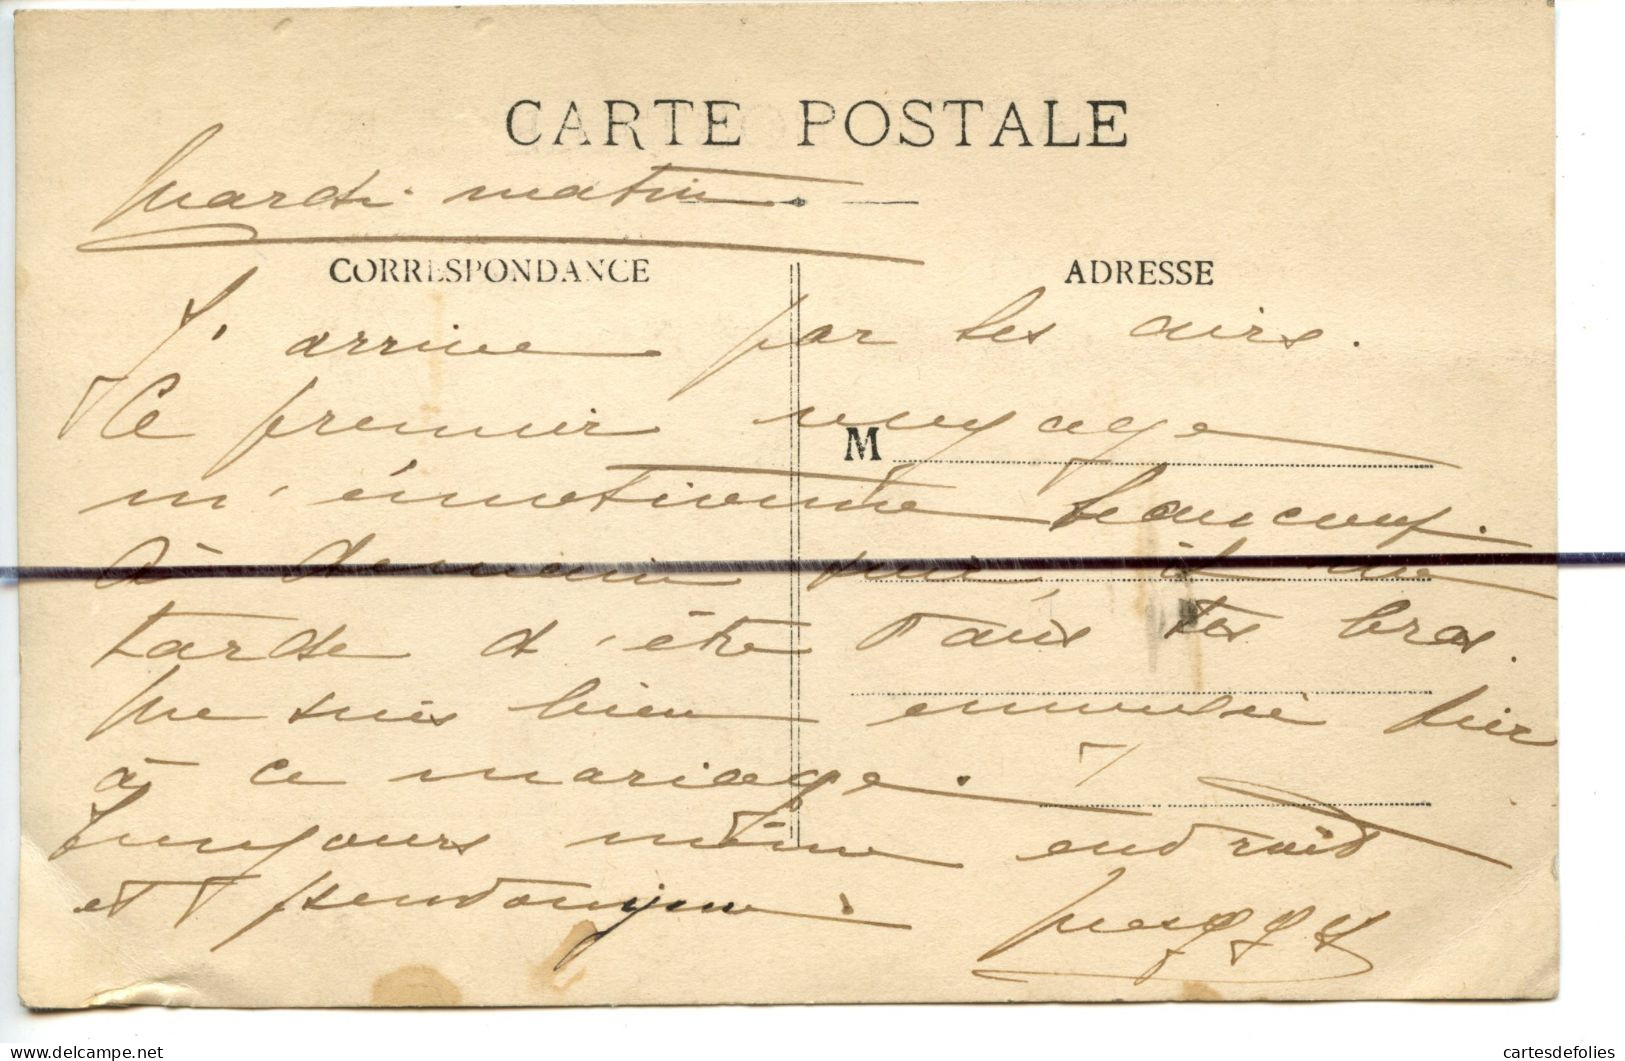 CARTE POSTALE
Mardi matin.
CORRESPONDANCE
ADRESSE
J'arrive par les airs.
Ce premier voyage
M
m'émotionne beaucoup.
à demain oui, il me
tarde d'être dans tes bras.
Me suis bien ennuyée hier
à ce mariage.
Toujours même endroit
et pseudonyme.
delcampe.net
cartesdefolies